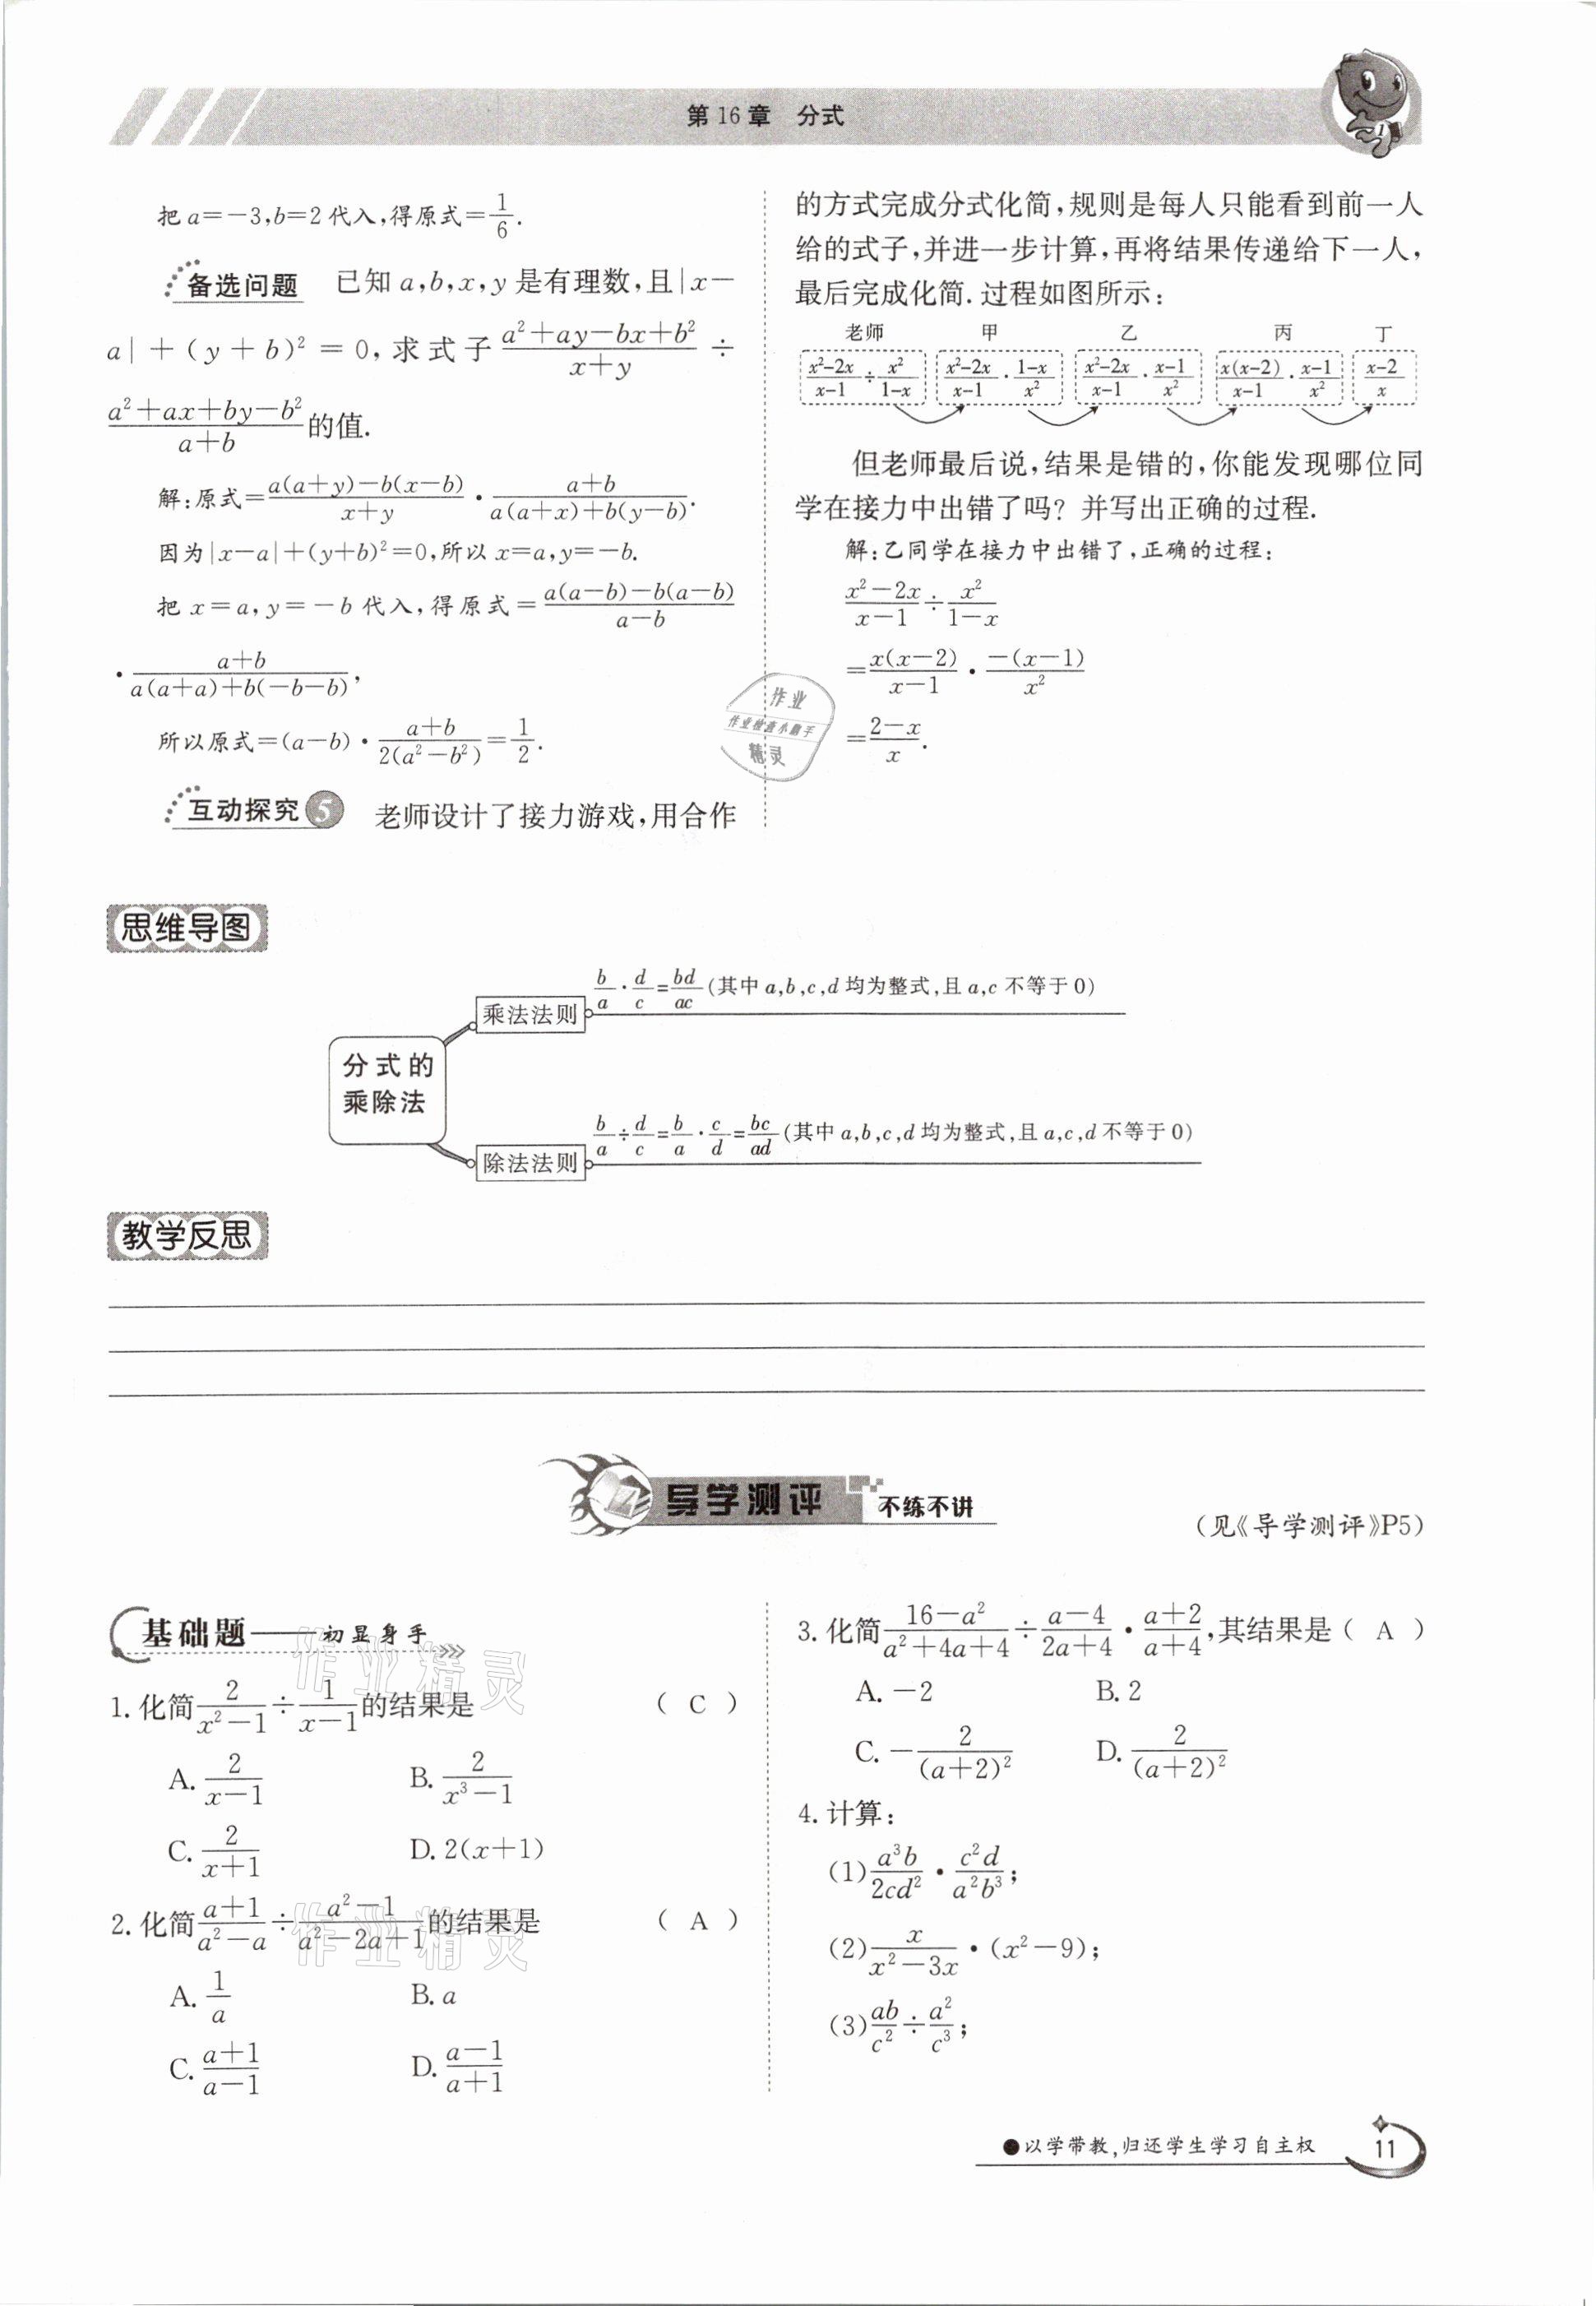 第16章 分式
把a=-3,b=2代入,得原式=1/6.
备选问题 已知a,b,x,y是有理数,且|x-
a|+(y+b)²=0,求式子(a²+ay-bx+b²)/(x+y)÷
(a²+ax+by-b²)/(a+b)的值.
解:原式=[a(a+y)-b(x-b)]/(x+y)·(a+b)/[a(a+x)+b(y-b)].
因为|x-a|+(y+b)²=0,所以x=a,y=-b.
把x=a,y=-b代入,得原式=[a(a-b)-b(a-b)]/(a-b)
·(a+b)/[a(a+a)+b(-b-b)],
所以原式=(a-b)·(a+b)/[2(a²-b²)]=1/2.
互动探究5 老师设计了接力游戏,用合作
的方式完成分式化简,规则是每人只能看到前一人
给的式子,并进一步计算,再将结果传递给下一人,
最后完成化简.过程如图所示:
老师 甲 乙 丙 丁
(x²-2x)/(x-1)÷x²/(1-x) (x²-2x)/(x-1)·(1-x)/x² (x²-2x)/(x-1)·(x-1)/x² x(x-2)/(x-1)·(x-1)/x² (x-2)/x
但老师最后说,结果是错的,你能发现哪位同
学在接力中出错了吗?并写出正确的过程.
解:乙同学在接力中出错了,正确的过程:
(x²-2x)/(x-1)÷x²/(1-x)
=x(x-2)/(x-1)·-(x-1)/x²
=(2-x)/x.
作业
作业检查小助手
精灵
思维导图
b/a·d/c=bd/ac(其中a,b,c,d均为整式,且a,c不等于0)
乘法法则
分式的
乘除法
b/a÷d/c=b/a·c/d=bc/ad(其中a,b,c,d均为整式,且a,c,d不等于0)
除法法则
教学反思
导学测评 不练不讲
(见《导学测评》P5)
基础题——初显身手
1.化简2/(x²-1)÷1/(x-1)的结果是 ( C )
A.2/(x-1) B.2/(x³-1)
C.2/(x+1) D.2(x+1)
2.化简(a+1)/(a²-a)÷(a²-1)/(a²-2a+1)的结果是 ( A )
A.1/a B.a
C.(a+1)/(a-1) D.(a-1)/(a+1)
3.化简(16-a²)/(a²+4a+4)÷(a-4)/(2a+4)·(a+2)/(a+4),其结果是( A )
A.-2 B.2
C.-2/(a+2)² D.2/(a+2)²
4.计算:
(1)a³b/2cd²·c²d/a²b³;
(2)x/(x²-3x)·(x²-9);
(3)ab/c²÷a²/c³;
作业精灵
作业精灵
●以学带教,归还学生学习自主权 11